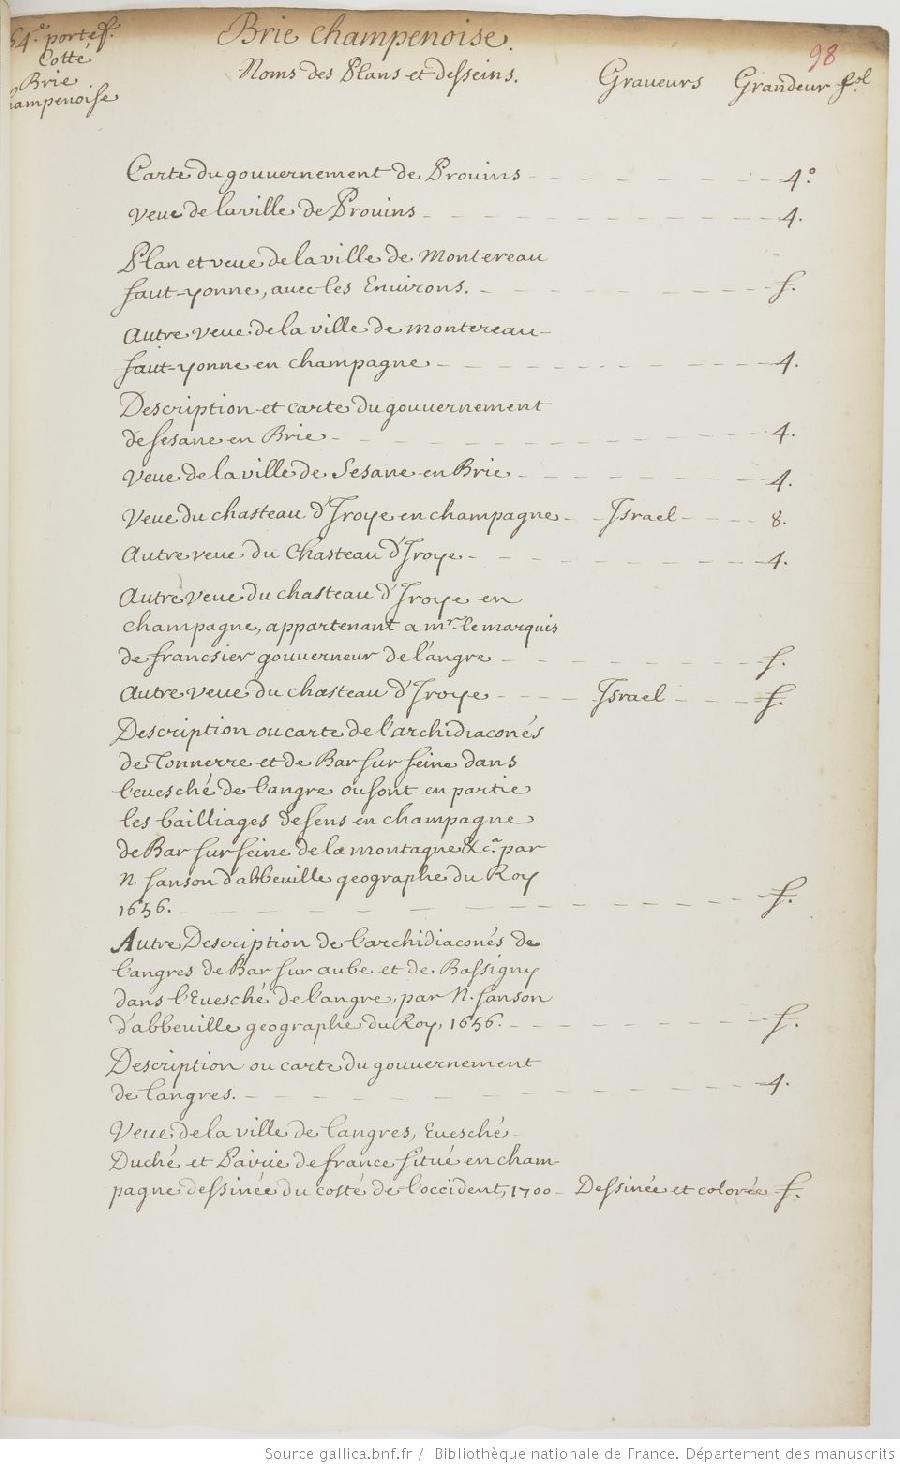 64.e portef.
Cotté
Brie
hampenoise
Brie champenoise.
98
Noms des Plans et desseins. Graveurs Grandeur fol.
Carte du gouvernement de Provins - - - - - 4.o
Veue de la ville de Provins - - - - - 4.
Plan et veue de la ville de Montereau
faut-yonne, avec les Environs. - - - - - f.
Autre veue de la ville de montereau-
faut-yonne en champagne - - - - - 4.
Description et carte du gouvernement
de sesane en Brie - - - - - 4.
Veue de la ville de Sesane en Brie - - - - - 4.
Veue du chasteau d'Iroye en champagne - - Israel - - - - 8.
Autre veue du Chasteau d'Iroye - - - - - 4.
Autre Veue du chasteau d'Iroye en
champagne, appartenant a mr. le marquis
de francsier gouverneur de l'angre - - - - - f.
Autre veue du chasteau d'Iroye - - - - Israel - - - f.
Description ou carte de l'archidiaconés
de Tonnerre et de Bar sur seine dans
l'euesché de langre ou sont en partie
les bailliages de sens en champagne
de Bar sur seine de la montagne &c.a par
N sanson d'abbeuille geographe du Roy
1656. - - - - - f.
Autre Description de l'archidiaconés de
langres de Bar sur aube et de Bassigny
dans l'Euesché de langre, par N. sanson
d'abbeuille geographe du Roy, 1656. - - - - - f.
Description ou carte du gouvernement
de langres. - - - - - 4.
Veue de la ville de langres, Euesché
Duché et Pairie de france situé en cham-
pagne dessinée du costé de l'occident, 1700 - Dessinée et colorée f.
Source gallica.bnf.fr / Bibliothèque nationale de France. Département des manuscrits